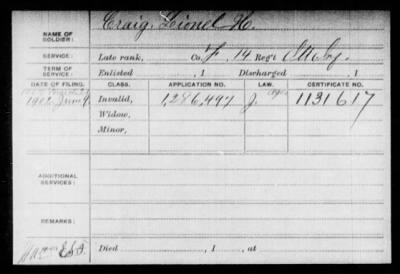 NAME OF SOLDIER: Craig, Lionel H.
SERVICE: Late rank, Co. F, 14 Reg't
TERM OF SERVICE: Enlisted , 1 Discharged , 1
DATE OF FILING. CLASS. APPLICATION NO. LAW. CERTIFICATE NO.
1902 June 9. Invalid, 1,286,497 J. 1131617
Widow,
Minor,
ADDITIONAL SERVICES:
REMARKS:
Died , 1 , at